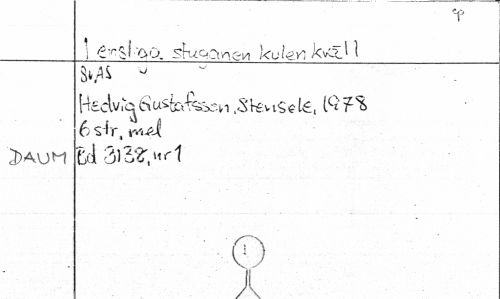 I ensliga stuganen kulen kväll
SvAS
Hedvig Gustafsson, Stensele, 1978
6 str, mel
DAUM Bd 3138, nr 1
1